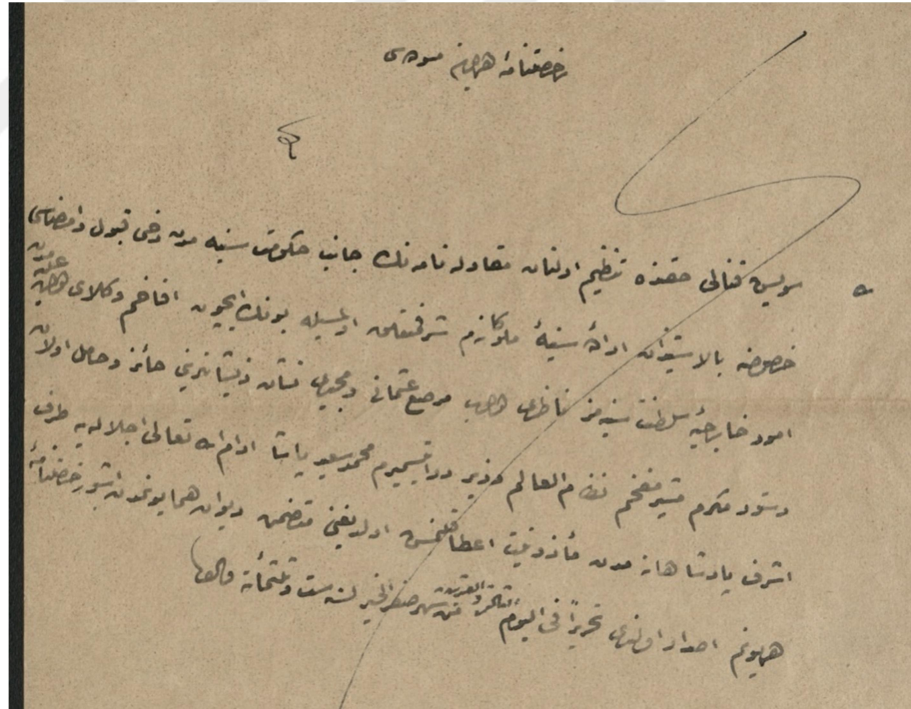 رخصتنامهٔ همایون مسوده‌سی
سویس قنالی حقنده تنظیم اولنان مقاوله‌نامه‌نك جانب حكومت سنیه‌مدن دخی قبول و امضاسی
خصوصنه بالاستیذان ارادهٔ سنیهٔ ملوكانه‌م شرفتعلق ایلمسیله بونك ایچون افاخم وكلای
امور خارجیهٔ سلطنت سنیه‌مز ناظری اولوب مرصع عثمانی و مجیدی نشان ذیشانلرینی حائز و حامل اولان
دستور مكرم مشیر مفخم نظام العالم وزیر درایتسمیرم محمد سعید پاشا ادام الله تعالی اجلاله‌یه طرف
اشرف پادشاهانه‌مدن مأذونیت اعطا قلنمش اولدیغنی متضمن دیوان همایونمدن اشبو رخصتنامهٔ
همایونم اصدار اولندی تحریراً فی الیوم من شهر صفر الخیر لسنه ست و ثلثمائة والف